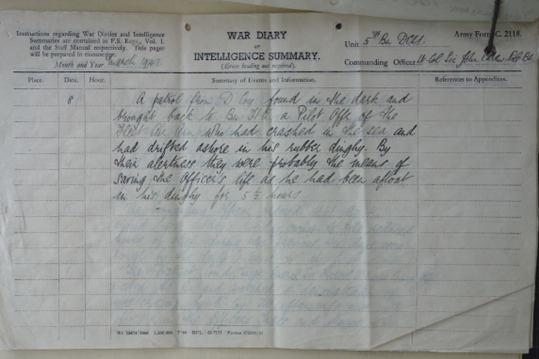 Instructions regarding War Diaries and Intelligence
Summaries are contained in F.S. Regs., Vol. I.
and the Staff Manual respectively. Title pages
will be prepared in manuscript.
Month and Year March
WAR DIARY
or
INTELLIGENCE SUMMARY.
(Erase heading not required).
Army Form C. 2118.
Unit 5th Bn DCLI.
Commanding Officer Lt. Col. Sir John
Place. Date. Hour. Summary of Events and Information. References to Appendices.
8 A patrol from D Coy found in the dark and
brought back to Bn H.Q. a Pilot Offr of the
Fleet Air Arm who had crashed in the sea and
had drifted ashore in his rubber dinghy. By
their alertness they were probably the means of
saving the Officer's life as he had been afloat
in his dinghy for 5½ hours